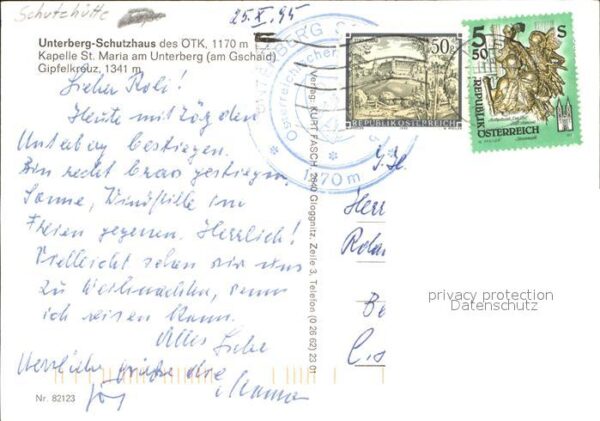 Schutzhütte
25.X.95
Unterberg-Schutzhaus des ÖTK, 1170 m
Kapelle St. Maria am Unterberg (am Gschaid)
Gipfelkreuz, 1341 m
Lieber Roli!
Heute mit Jörg den
Unterberg bestiegen.
Bin recht brav gestiegen.
Sonne, Windstille im
Freien gegessen. Herrlich!
Vielleicht sehen wir uns
zu Weihnachten, wenn
ich reisen kann.
Alles Liebe
Herzliche Grüße die
Jörg Mama
Nr. 82123
Verlag: KURT FASCH, 2640 Gloggnitz, Zeile 3, Telefon (0 26 62) 23 01
UNTERBERG
Österreichischer
1170 m
50 g
REPUBLIK ÖSTERREICH
5 50 S
REPUBLIK
ÖSTERREICH
Herr
privacy protection
Datenschutz